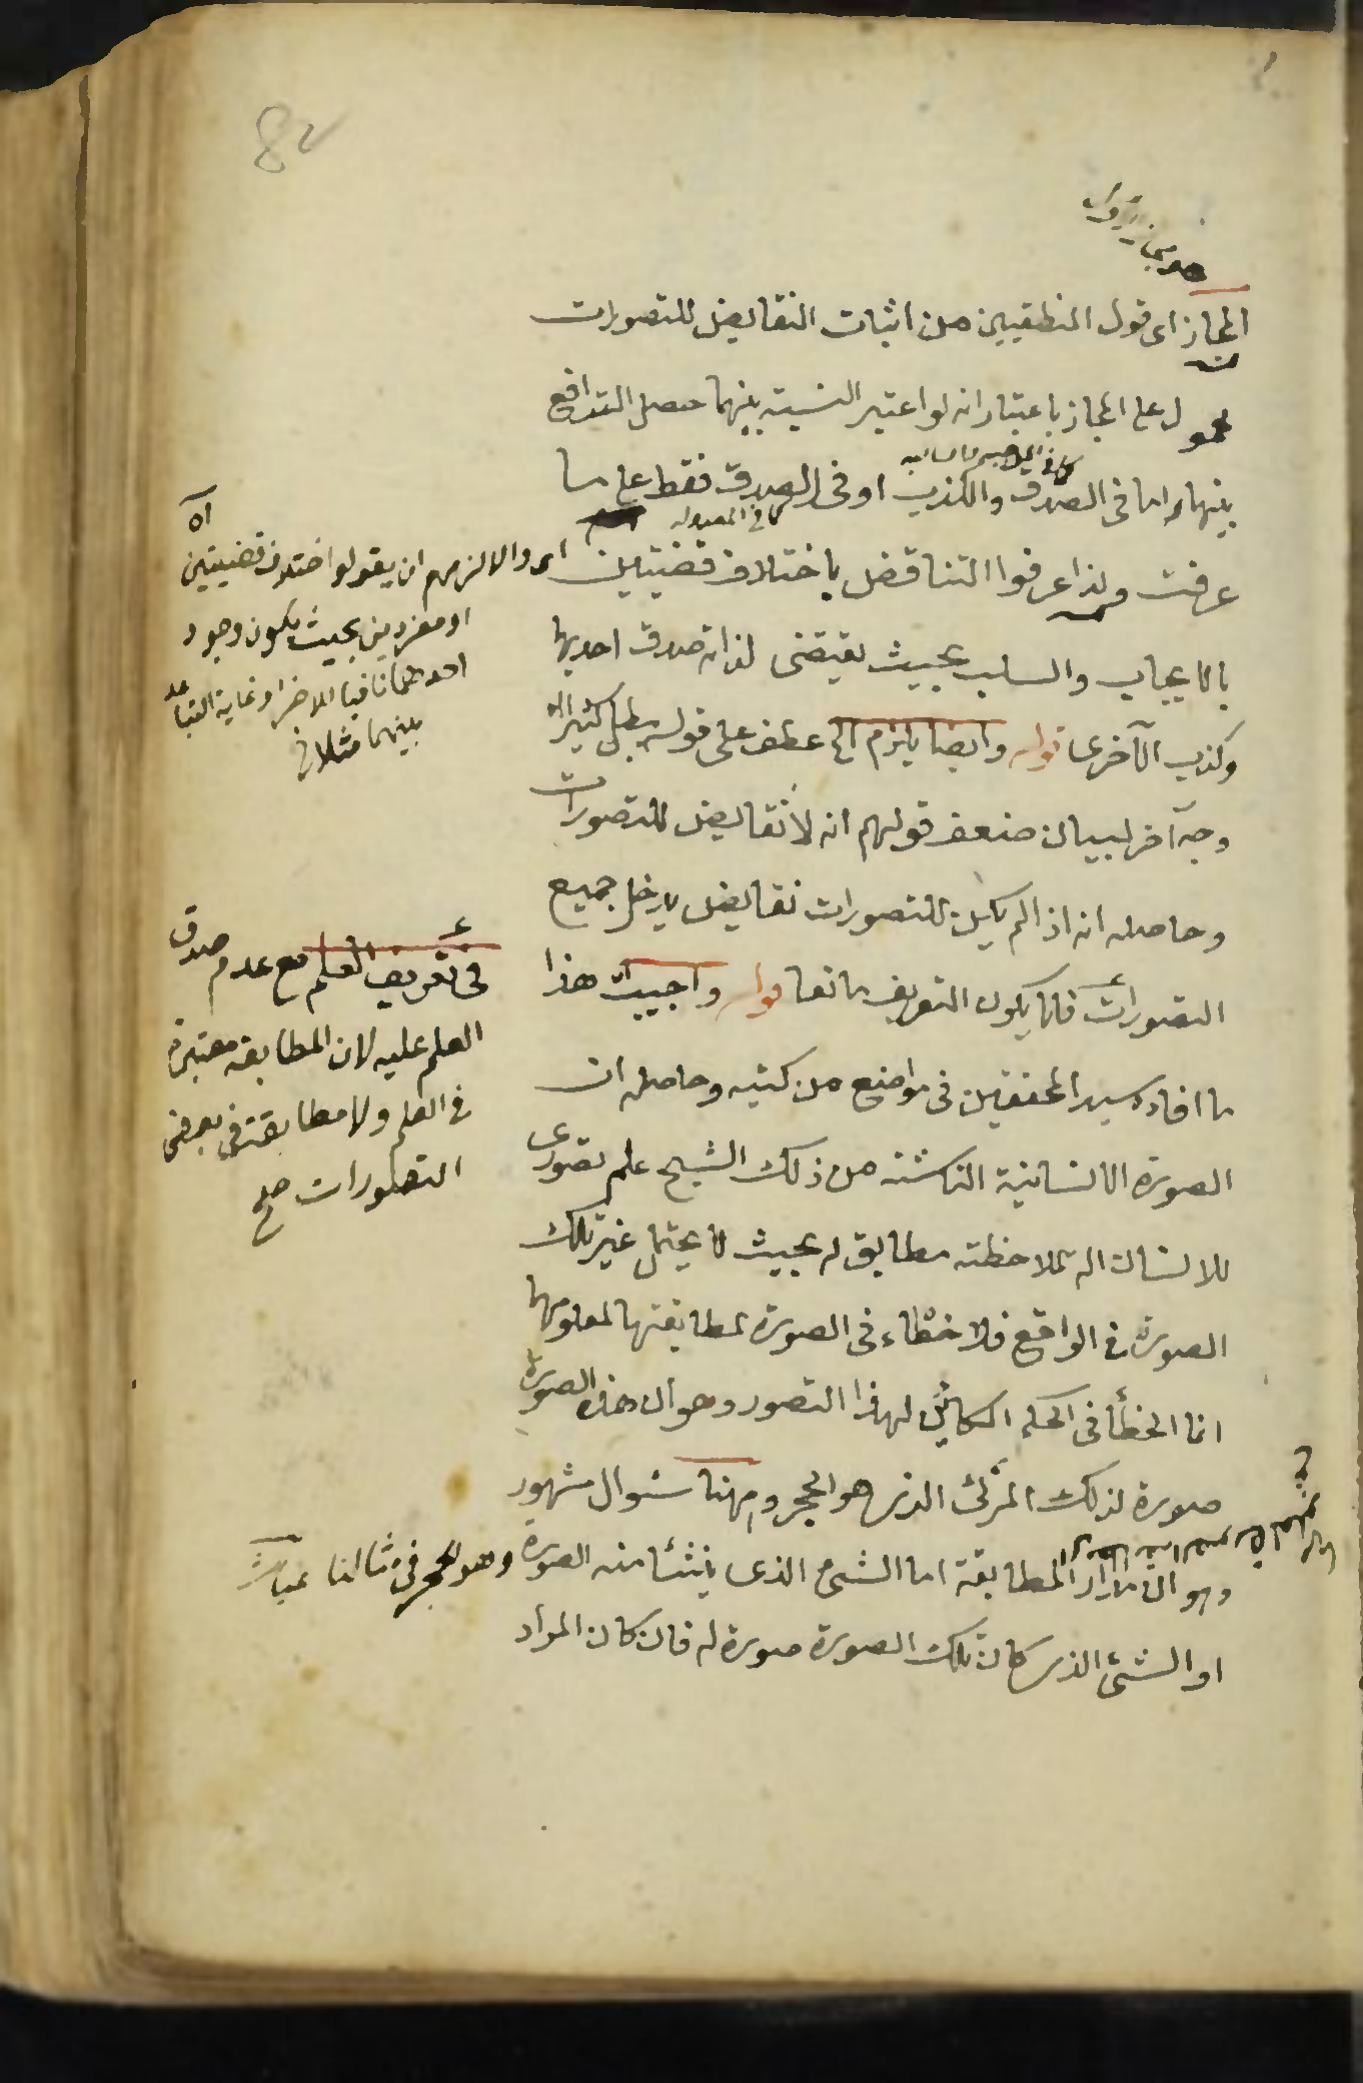 82
المجاز اى قول المنطقيين من اثبات النقايض للتصورات
محمول على المجاز باعتبار انه لو اعتبر النسبة بينهما حصل التدافع
بينهما اما فى الصدق والكذب او فى الصدق فقط على ما
كما فى المعدولة
عرفت ولذا عرفوا التناقض باختلاف قضيتين
بالايجاب والسلب بحيث يقتضى لذاته صدق احديهما
وكذب الآخرى قوله وايضا يلزم الخ عطف على قوله يبطل كثيرا
وجه آخر لبيان ضعف قولهم انه لا نقايض للتصورات
وحاصله انه اذا لم يكن للتصورات نقايض يدخل جميع
التصورات فلا يكون التعريف مانعا قوله واجيب هذا
ما افاده سيد المحققين فى مواضع من كتبه وحاصله ان
الصورة الانسانية الناشئة من ذلك الشبح علم تصورى
للانسان الة لملاحظته مطابق له بحيث لا يحتمل غير تلك
الصورة فى الواقع فلا خطاء فى الصورة لمطابقتها لمعلومها
انما الخطأ فى الحكم الكاين لهذا التصور وهو ان هذه الصورة
صورة لذلك المرئى الذى هو الحجر وههنا سئوال مشهور
وهو ان المراد المطابقة اما الشئ الذى ينشأ منه الصورة وهو الحجر فى مثالنا
او الشئ الذى كان تلك الصورة صورة له فان كان المراد
اى والا لزمهم ان يقولوا اختلاف قضيتين اه
او مفردين بحيث يكون وجود
احدهما نافيا للاخر او غاية التباعد
بينهما مثلا
فى تعريف العلم مع عدم صدق
العلم عليه لان المطابقة معتبرة
فى العلم ولا مطابقة فى بعض
التصورات صح